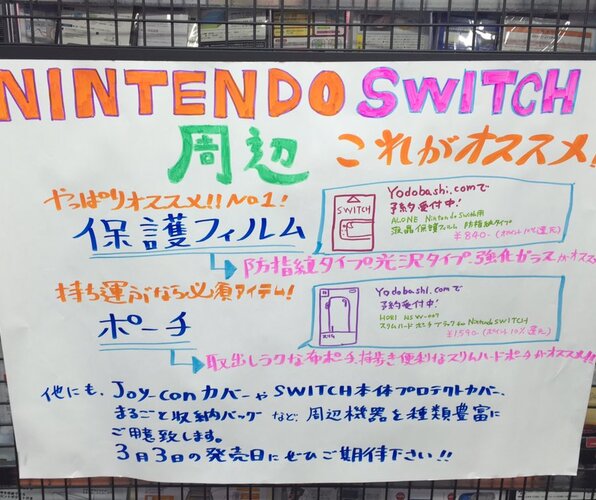 NINTENDO SWITCH
周辺 これがオススメ!
やっぱりオススメ!! No1!
保護フィルム
SWITCH
Yodobashi.comで
予約受付中!
ALONE Nintendo Switch用
液晶保護フィルム 防指紋タイプ
¥840- (ポイント10%還元)
防指紋タイプ.光沢タイプ.強化ガラスがオススメ
持ち運ぶなら必須アイテム!
ポーチ
Yodobashi.comで
予約受付中!
HORI NSW-007
スリムハードポーチ ブラック for Nintendo SWITCH
¥1,590- (ポイント10%還元)
取出しラクな布ポーチ.持歩き便利なスリムハードポーチがオススメ!!
他にも、Joy-conカバーやSWITCH本体プロテクトカバー、
まるごと収納バッグなど、周辺機器を種類豊富に
ご用意致します。
3月3日の発売日にぜひご期待下さい!!